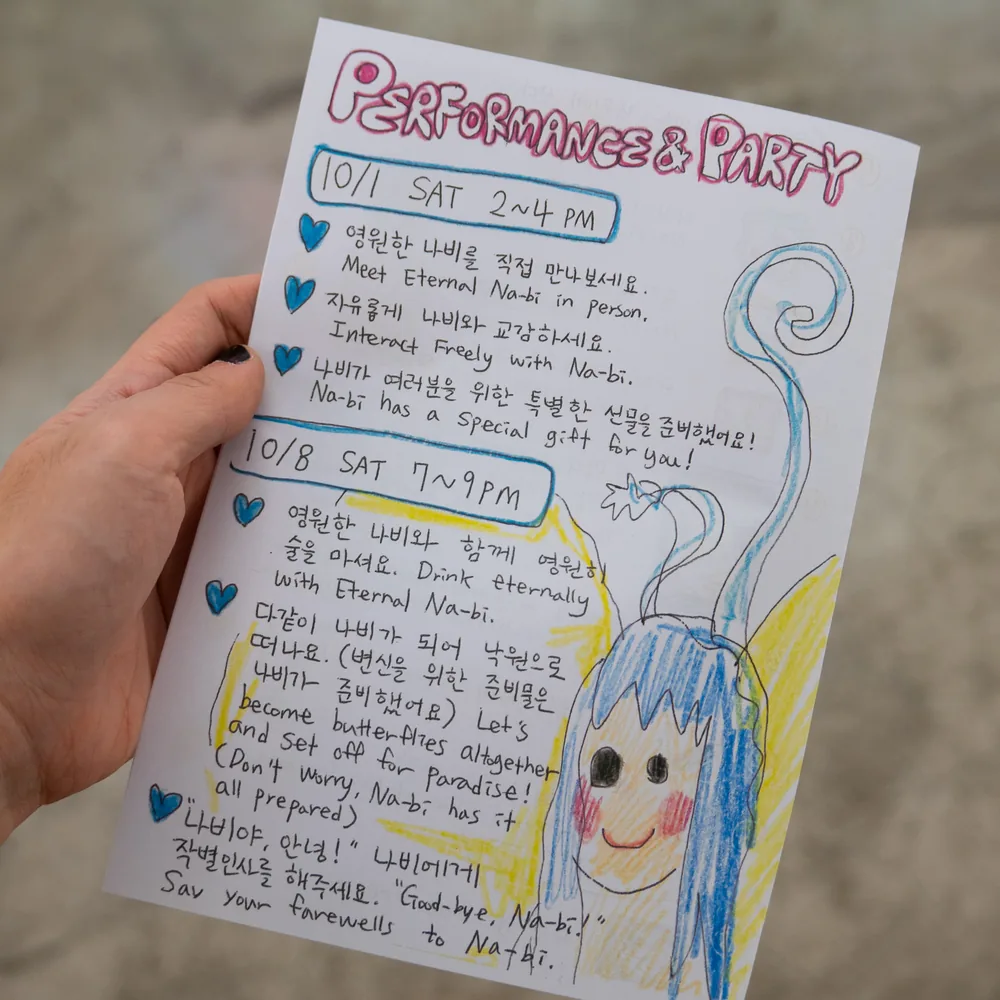 PERFORMANCE & PARTY
10/1 SAT 2~4 PM
영원한 나비를 직접 만나보세요.
Meet Eternal Na-bi in person.
자유롭게 나비와 교감하세요.
Interact Freely with Na-bi.
나비가 여러분을 위한 특별한 선물을 준비했어요!
Na-bi has a special gift for you!
10/8 SAT 7~9PM
영원한 나비와 함께 영원히
술을 마셔요. Drink eternally
with Eternal Na-bi.
다같이 나비가 되어 낙원으로
떠나요. (변신을 위한 준비물은
나비가 준비했어요) Let's
become butterflies altogether
and set off for paradise!
(Don't worry, Na-bi has it
all prepared)
"나비야, 안녕!" 나비에게
작별인사를 해주세요. "Good-bye, Na-bi!"
Say your farewells to Na-bi.